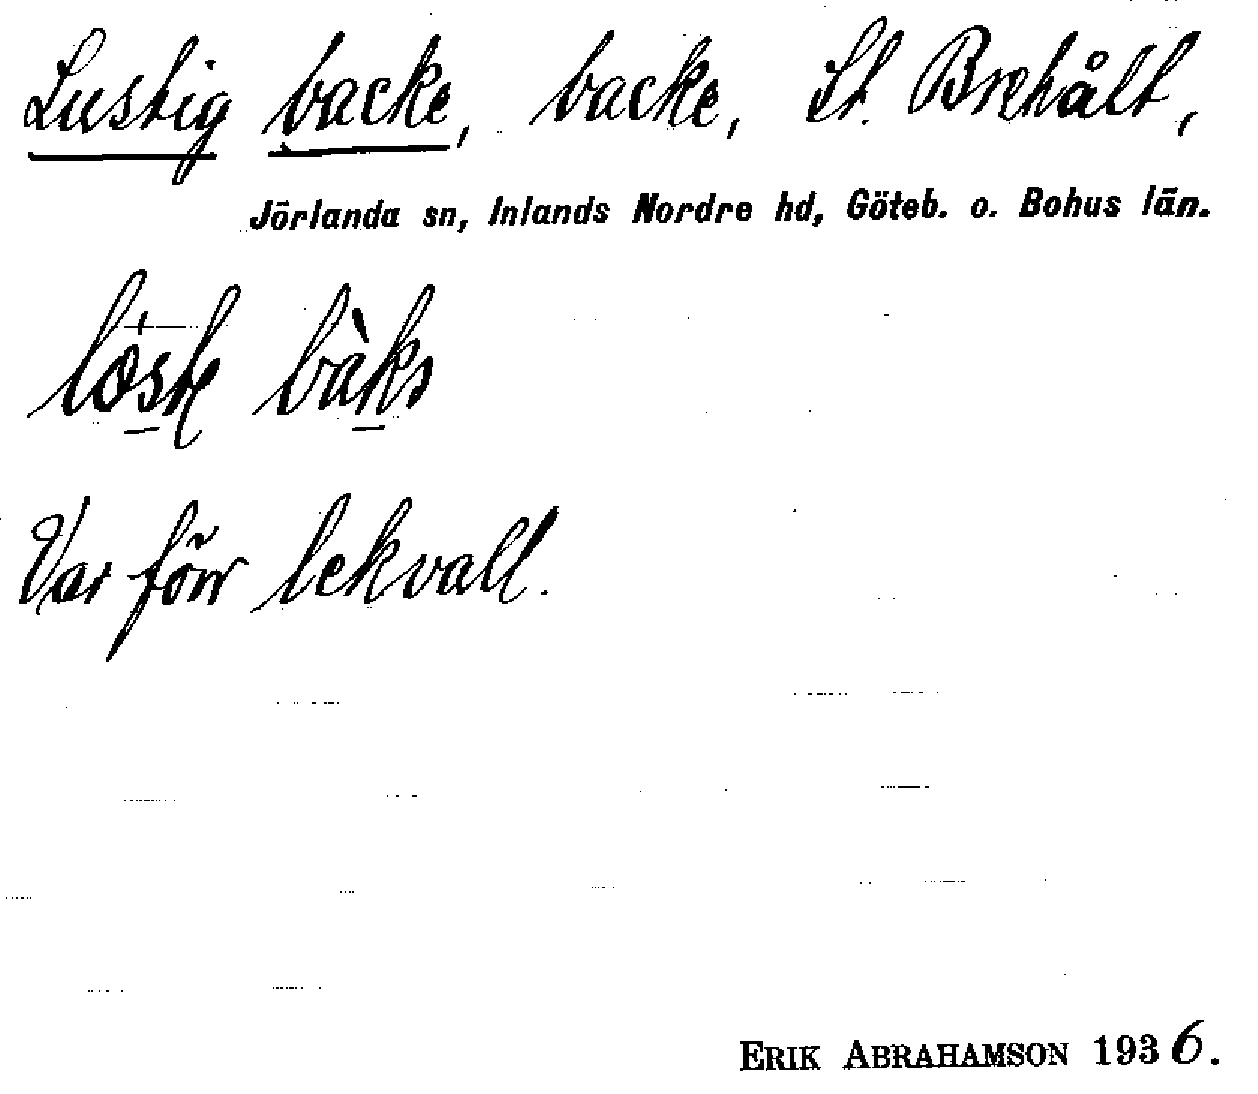 Lustig backe, backe, St. Brehålt,
Jörlanda sn, Inlands Nordre hd, Göteb. o. Bohus län.
lösk bàks
Var förr lekvall.
ERIK ABRAHAMSON 1936.